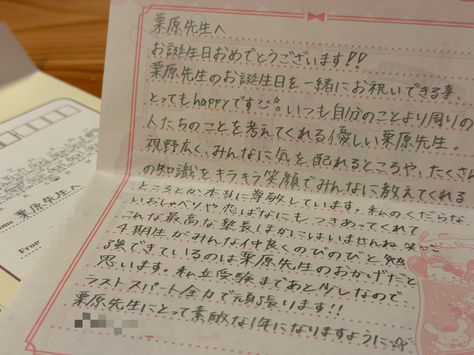 栗原先生へ
お誕生日おめでとうございます!!
栗原先生のお誕生日を一緒にお祝いできる事、
とってもhappyです。いつも自分のことより周りの
人たちのことを考えてくれる優しい栗原先生。
視野広く、みんなに気を配れるところや、たくさん
の知識をキラキラ笑顔でみんなに教えてくれる
ところとか本当に尊敬しています。私のくだらな
いおしゃべりや恋ばなにもつきあってくれて
こんな最高な塾長ほかにはいませんね笑
4期生がみんな仲良くのびのびと勉
強できているのは栗原先生のおかげだと
思います。私立受験まであと少しなので
ラストスパート全力で頑張ります!!
栗原先生にとって素敵な1年になりますように
栗原先生へ
From